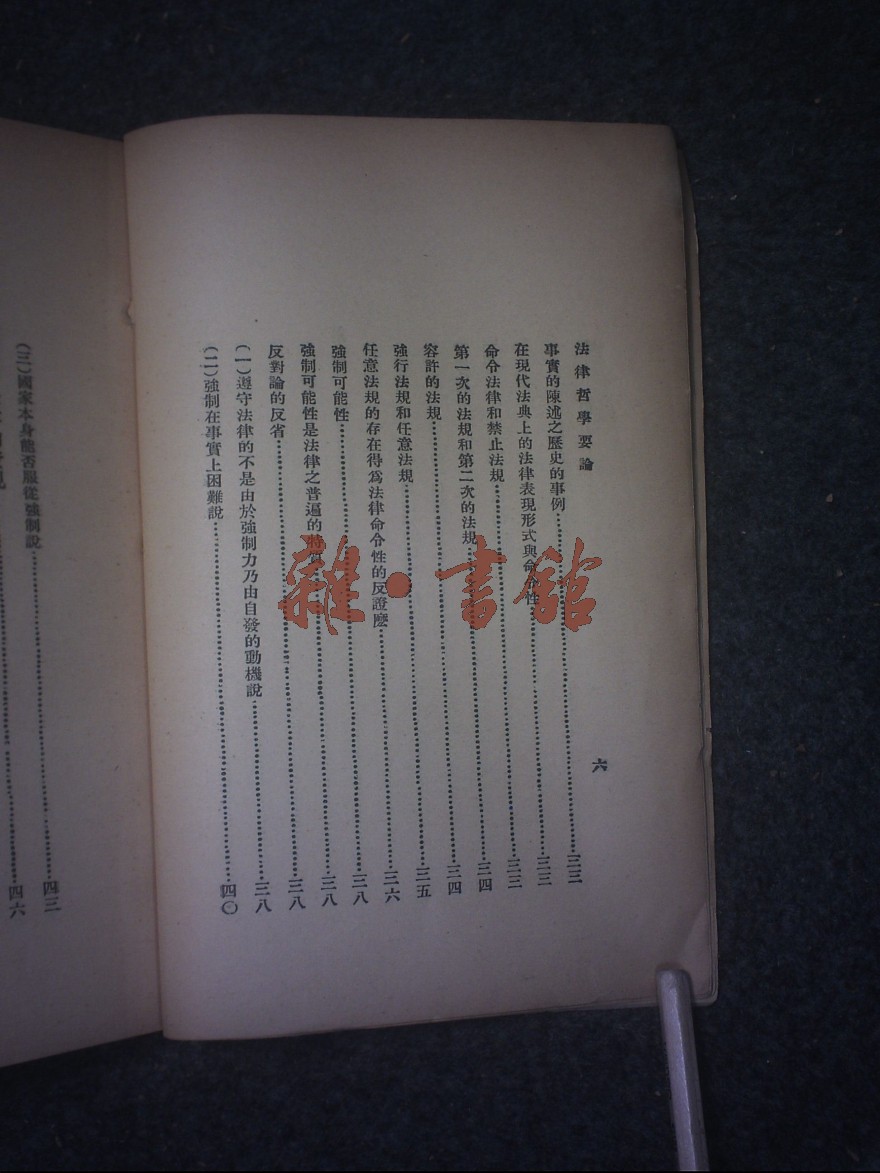 法律哲學要論
六
事實的陳述之歷史的事例…………三三
在現代法典上的法律表現形式與命令性…………三三
命令法律和禁止法規…………三三
第一次的法規和第二次的法規…………三四
容許的法規…………三四
強行法規和任意法規…………三五
任意法規的存在得爲法律命令性的反證麽…………三六
強制可能性…………三八
強制可能性是法律之普遍的特質…………三八
反對論的反省…………三八
(一)遵守法律的不是由於強制力乃由自發的動機說…………三八
(二)強制在事實上困難說…………四〇
(三)國家本身能否服從強制說…………四三
…………四六
雜·書館